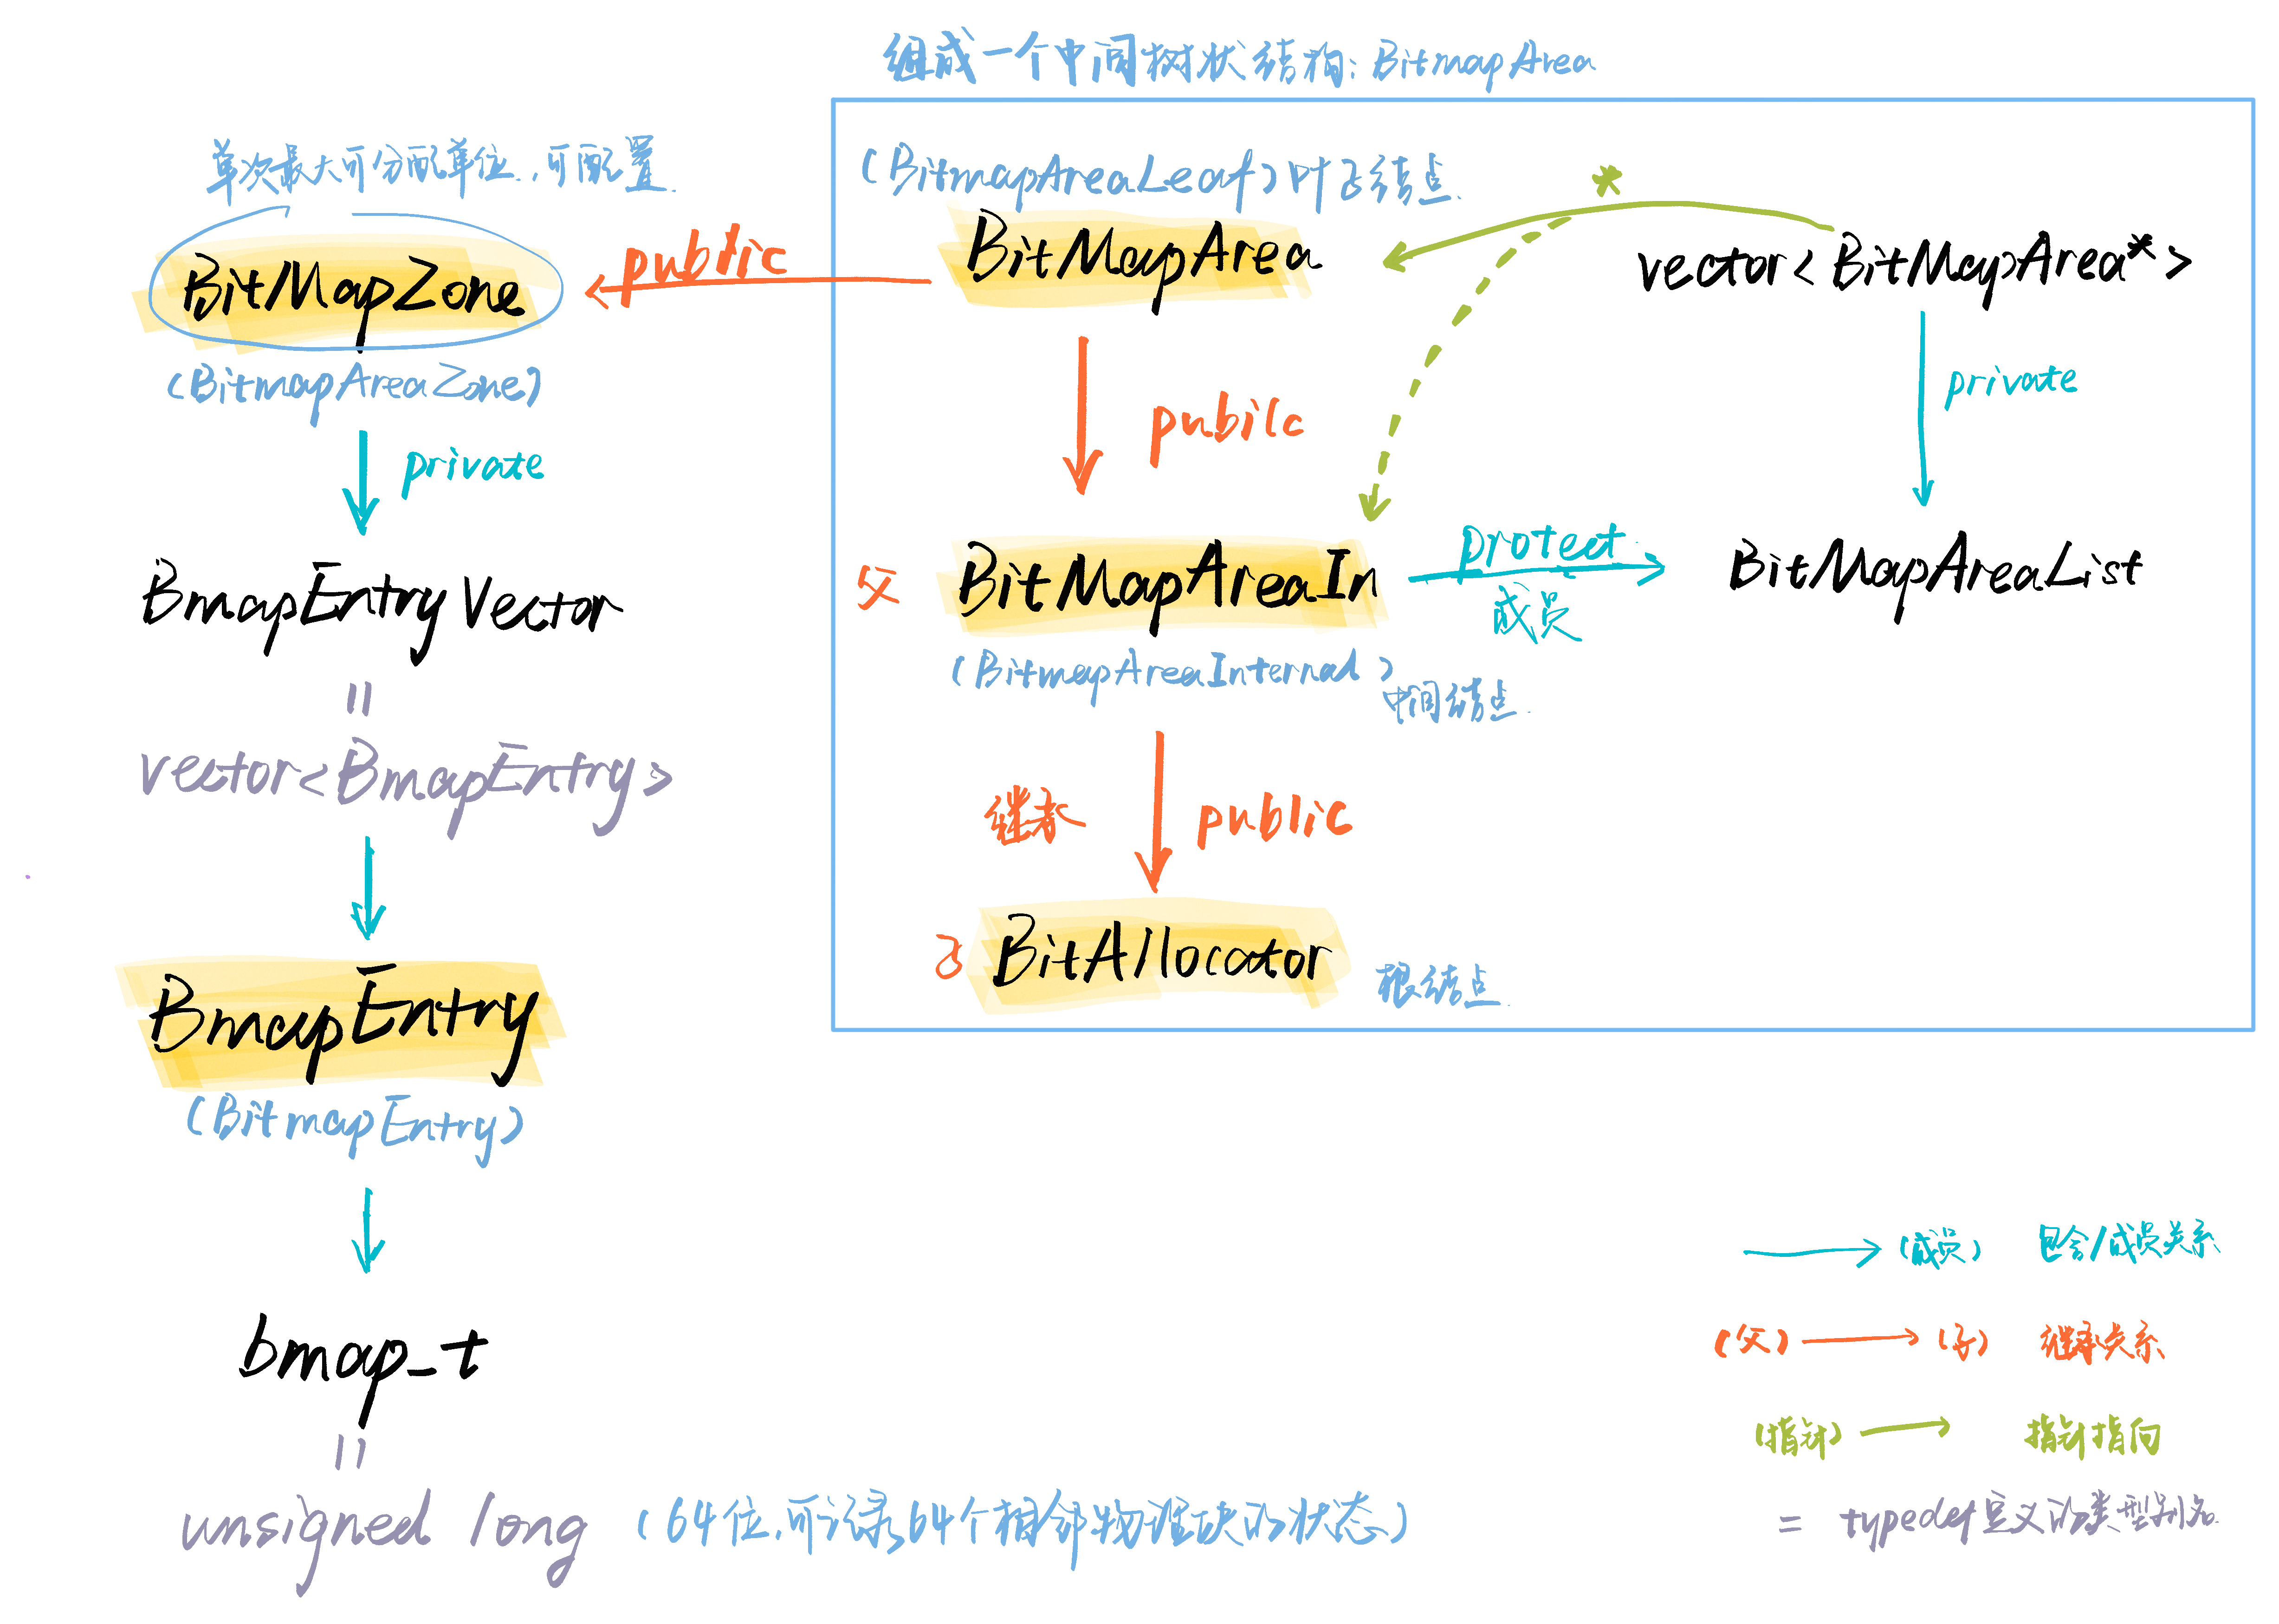 组成一个中间树状结构: BitmapArea
单次最大可分配单位,可配置.
BitMapZone
(BitmapAreaZone)
private
BmapEntryVector
=
vector<BmapEntry>
BmapEntry
(BitmapEntry)
bmap_t
=
unsigned long (64位,可记录64个相邻物理块的状态)
public
(BitmapAreaLeaf)叶子结点.
BitMapArea
*
vector<BitMapArea*>
pubilc
private
父 BitMapAreaIn
protect
成员
BitMapAreaList
(BitmapAreaInternal)
中间结点.
继承 public
子 BitAllocator 根结点.
(成员) 包含/成员关系
(父) (子) 继承关系
(指针) 指针指向
= typedef定义的类型别名.